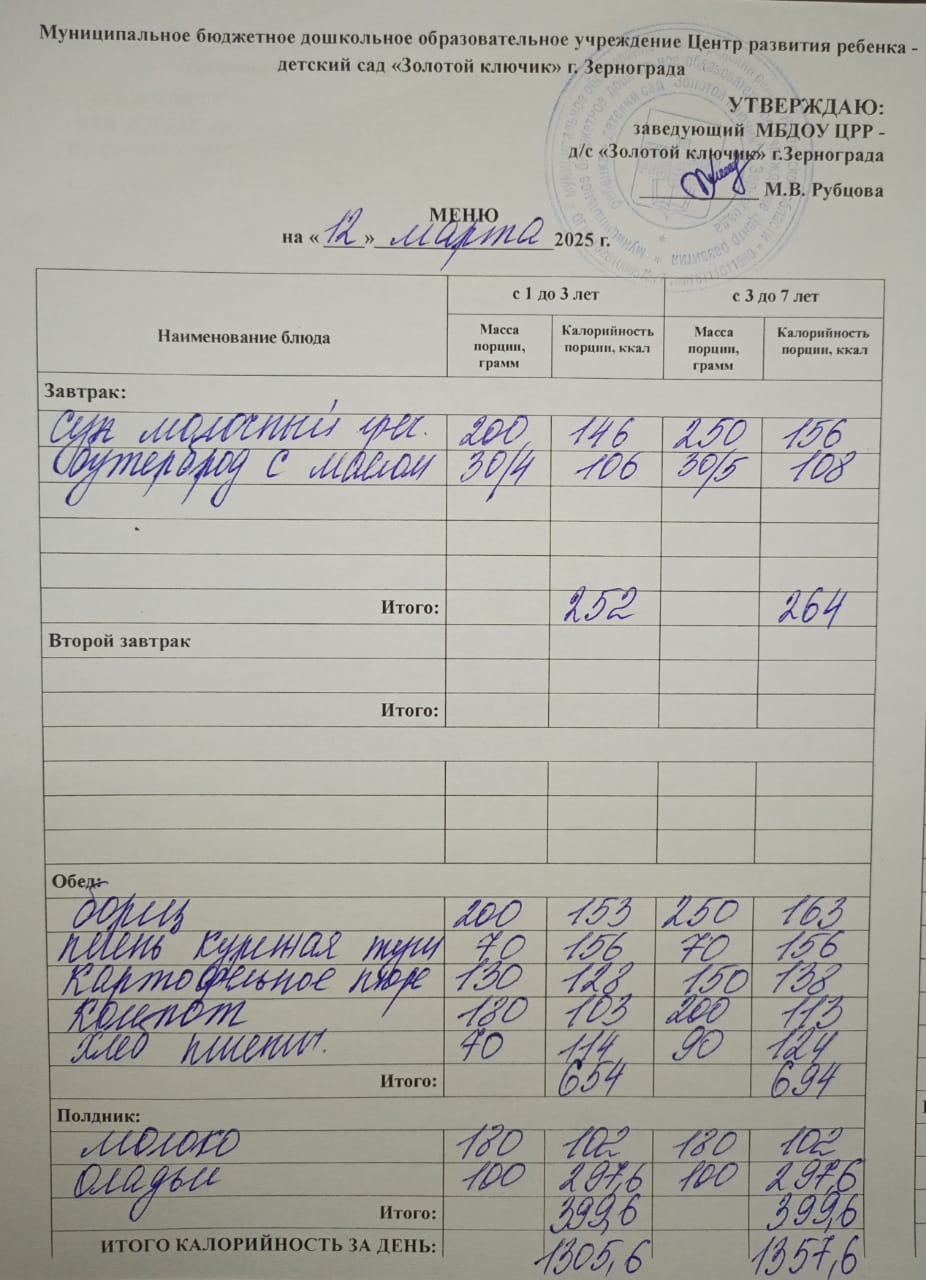 Муниципальное бюджетное дошкольное образовательное учреждение Центр развития ребенка -
детский сад «Золотой ключик» г. Зернограда
УТВЕРЖДАЮ:
заведующий МБДОУ ЦРР -
д/с «Золотой ключик» г.Зернограда
М.В. Рубцова
МЕНЮ
на « 12 » марта 2025 г.
Наименование блюда
с 1 до 3 лет с 3 до 7 лет
Масса порции, грамм Калорийность порции, ккал Масса порции, грамм Калорийность порции, ккал
Завтрак:
суп молочный греч. 200 146 250 156
Бутерброд с маслом 30/4 106 30/5 108
Итого: 252 264
Второй завтрак
Итого:
Обед:
борщ 200 153 250 163
печень куриная туш 70 156 70 156
картофельное пюре 130 128 150 138
Компот 180 103 200 113
хлеб пшенич. 70 114 90 124
Итого: 654 694
Полдник:
молоко 180 102 180 102
оладьи 100 297,6 100 297,6
Итого: 399,6 399,6
ИТОГО КАЛОРИЙНОСТЬ ЗА ДЕНЬ: 1305,6 1357,6